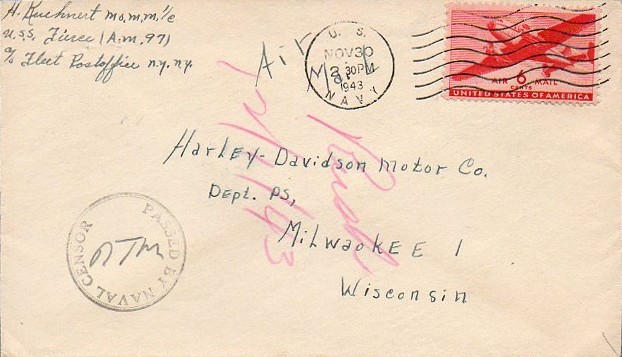 H. Kuehnert mo.m.m. 1/c
U.S.S. Fierce (A.M. 97)
c/o Fleet Postoffice N.Y. N.Y.
Air
Mail
U. S.
NOV 30
2 30 PM
1943
NAVY
AIR 6 MAIL
CENTS
UNITED STATES OF AMERICA
Harley-Davidson Motor Co.
Dept. PS,
Milwaukee 1
Wisconsin
PASSED BY NAVAL CENSOR